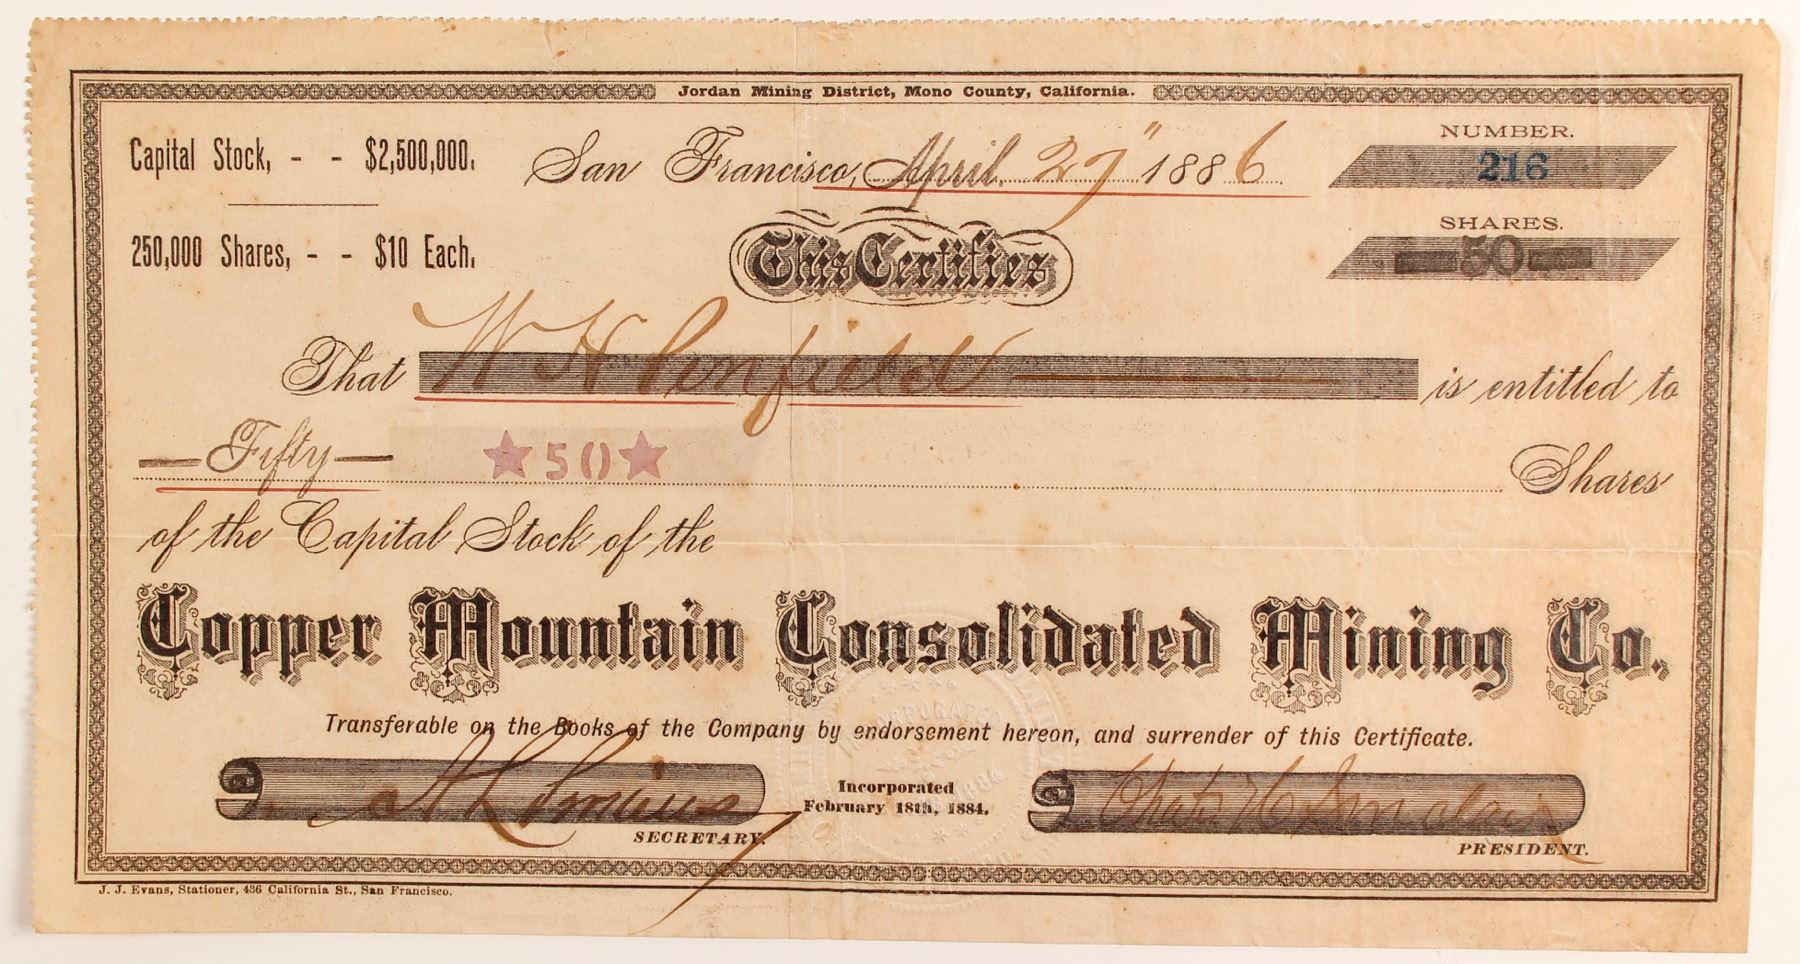 Jordan Mining District, Mono County, California.
Capital Stock, - - $2,500,000.
San Francisco, April 27" 1886
NUMBER.
216
250,000 Shares, - - $10 Each.
SHARES.
50
This Certifies
That W H Penfield is entitled to
Fifty ★50★ Shares
of the Capital Stock of the
Copper Mountain Consolidated Mining Co.
Transferable on the Books of the Company by endorsement hereon, and surrender of this Certificate.
Incorporated
February 18th, 1884.
SECRETARY.
PRESIDENT.
J. J. Evans, Stationer, 436 California St., San Francisco.